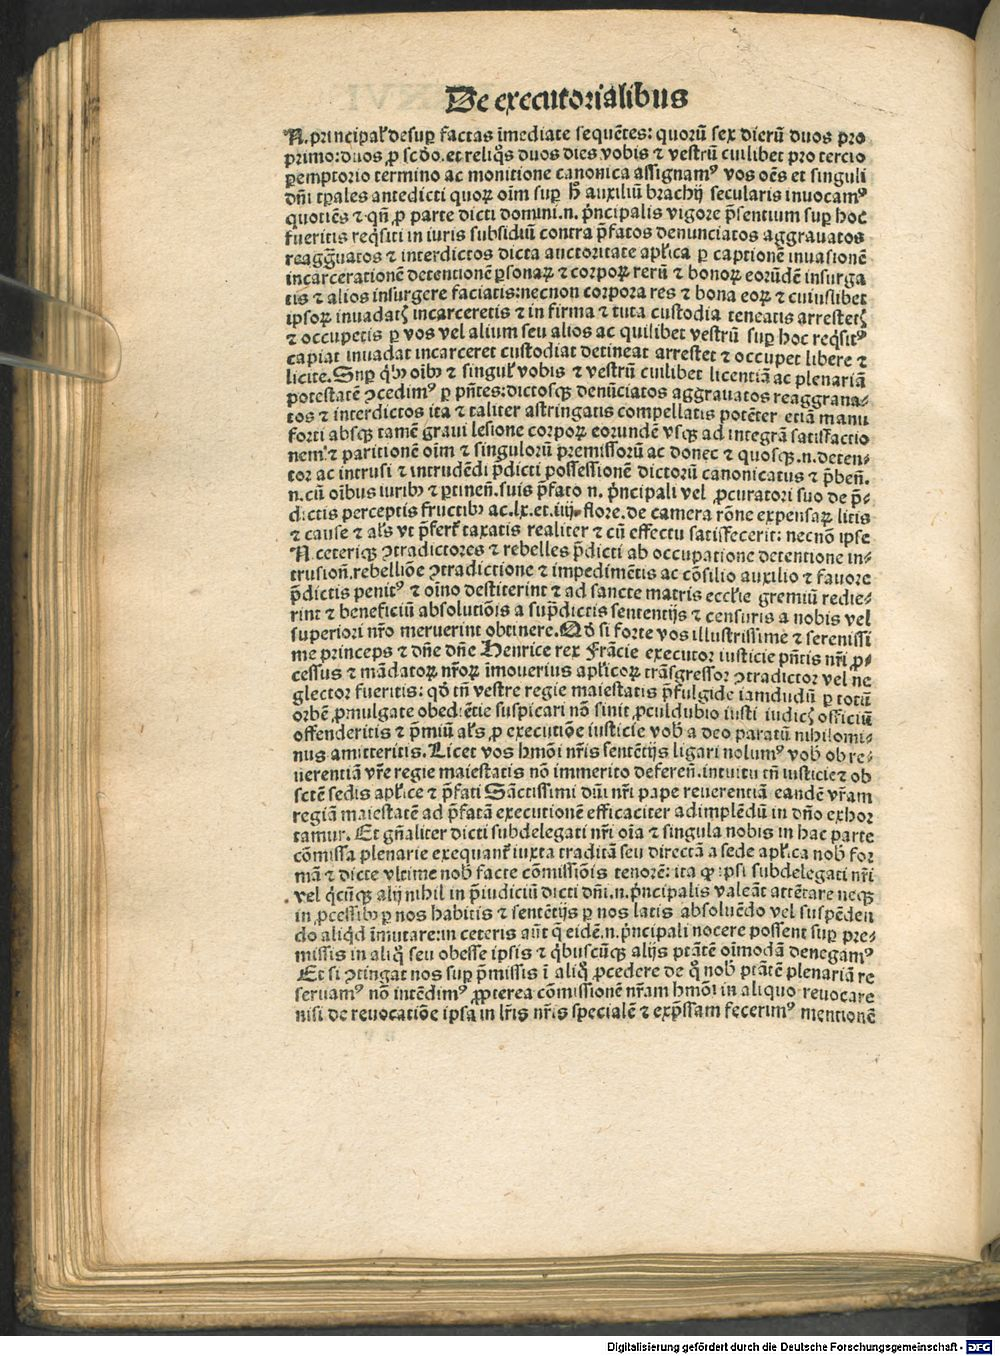 De executorialibus
N. principal' desup factas īmediate sequētes: quorū sex dierū duos pro
primo: duos ꝓ scd̄o. et reliq̄s duos dies vobis ⁊ vestrū cuilibet pro tercio
ꝑemptorio termino ac monitione canonica assignamꝰ vos oēs et singuli
dn̄i tꝑales antedicti quoꝝ oīm suꝑ h̄ auxiliū brachij secularis inuocamꝰ
quotiēs ⁊ qn̄ ꝓ parte dicti domini .n. p̄ncipalis vigore p̄sentium suꝑ hoc
fueritis reqͥsiti in iuris subsidiū contra p̄fatos denunciatos aggrauatos
reagg̃uatos ⁊ interdictos dicta auctoritate apl'ica ꝑ captionē inuasionē
incarcerationē detentionē ꝑsonaꝝ ⁊ corpoꝝ rerū ⁊ bonoꝝ eorūdē insurga
tis ⁊ alios insurgere faciatis: necnon corpora res ⁊ bona eoꝝ ⁊ cuiuslibet
ipsoꝝ inuadatꝭ incarceretis ⁊ in firma ⁊ tuta custodia teneatis arrestetꝭ
⁊ occupetis ꝑ vos vel alium seu alios ac quilibet vestrū suꝑ hoc reqͥsitꝰ
capiat inuadat incarceret custodiat detineat arrestet ⁊ occupet libere ⁊
licite. Suꝑ qͥbꝫ oībꝫ ⁊ singul' vobis ⁊ vestrū cuilibet licentiā ac plenariā
potestatē ꝯcedimꝰ ꝑ pn̄tes: dictosqꝫ denūciatos aggrauatos reaggraua-
tos ⁊ interdictos ita ⁊ taliter astringatis compellatis potēter etiā manu
forti absqꝫ tamē graui lesione corpoꝝ eorundē vsqꝫ ad integrā satisfactio
nem ⁊ paritionē oīm ⁊ singulorū premissorū ac donec ⁊ quosqꝫ .n. deten-
tor ac intrusi ⁊ intrudēdi p̄dicti possessionē dictorū canonicatus ⁊ p̄ben̄.
n. cū oībus iuribꝫ ⁊ ꝑtinen̄. suis p̄fato n. p̄ncipali vel ꝓcuratori suo de p̄-
dictis perceptis fructibꝫ ac .lx. et .iiij. flore. de camera rōne expensaꝝ litis
⁊ cause ⁊ al's vt p̄fert' taxatis realiter ⁊ cū effectu satisfecerit: necnō ipse
N ceteriqꝫ ꝯtradictores ⁊ rebelles p̄dicti ab occupatione detentione in-
trusion̄. rebelliōe ꝯtradictione ⁊ impedimētis ac cōsilio auxilio ⁊ fauore
p̄dictis penitꝰ ⁊ oīno destiterint ⁊ ad sancte matris eccl'ie gremiū redie-
rint ⁊ beneficiū absolutiōis a sup̄dictis sententijs ⁊ censuris a nobis vel
superiori nr̄o meruerint obtinere. Qd̄ si forte vos illustrissime ⁊ serenissi
me princeps ⁊ dn̄e dn̄e Henrice rex Frācie executor iusticie pn̄tis nr̄i ꝓ-
cessus ⁊ mādatoꝝ nr̄oꝝ īmouerius apl'icoꝝ trāsgressor ꝯtradictor vel ne
glector fueritis: qd̄ tn̄ vestre regie maiestatis p̄fulgide iamdudū ꝑ totū
orbē ꝓmulgate obediētie suspicari nō sinit ꝓculdubio iusti iudicꝭ officiū
offenderitis ⁊ p̄miū al's ꝓ executiōe iusticie vob̄ a deo paratū nihilomi-
nus amitteritis. Licet vos hmōi nr̄is sentētijs ligari nolumꝰ vob̄ ob re-
uerentiā vr̄e regie maiestatis nō immerito deferen̄. intuitu tn̄ iusticie ⁊ ob
sctē sedis apl'ice ⁊ p̄fati Sāctissimi dn̄i nr̄i pape reuerentiā eandē vr̄am
regiā maiestatē ad p̄fatā executionē efficaciter adimplēdū in dn̄o exhor
tamur. Et gn̄aliter dicti subdelegati nr̄i oīa ⁊ singula nobis in hac parte
cōmissa plenarie exequant' iuxta traditā seu directā a sede apl'ica nob̄ for
mā ⁊ dicte vltime nob̄ facte cōmissiōis tenorē: ita qꝫ ipsi subdelegati nr̄i
vel qͥcūqꝫ alij nihil in p̄iudiciū dicti dn̄i .n. p̄ncipalis valeāt attētare neqꝫ
in ꝓcessibꝫ ꝑ nos habitis ⁊ sentētijs ꝑ nos latis absoluēdo vel suspēden
do aliqͥd īmutare: in ceteris aūt q̄ eidē .n. p̄ncipali nocere possent suꝑ pre-
missis in aliqͦ seu obesse ipsis ⁊ qͥbuscūqꝫ alijs ptātē oīmodā denegamꝰ
Et si ꝯtingat nos suꝑ p̄missis ī aliqͦ ꝓcedere de qͦ nob̄ ptātē plenariā re
seruamꝰ nō intēdimꝰ ꝓpterea cōmissionē nr̄am hmōi in aliquo reuocare
nisi de reuocatiōe ipsa in lr̄is nr̄is specialē ⁊ exp̄ssam fecerimꝰ mentionē
Digitalisierung gefördert durch die Deutsche Forschungsgemeinschaft - DFG